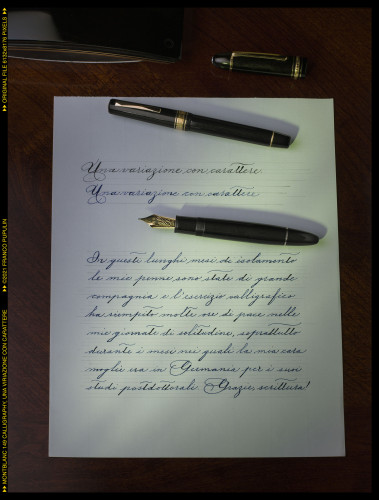 Una variazione con carattere
Una variazione con carattere
In questi lunghi mesi di isolamento
le mie penne sono state di grande
compagnia e l'esercizio calligrafico
ha riempito molte ore di pace nelle
mie giornate di solitudine, soprattutto
durante i mesi nei quali la mia cara
moglie era in Germania per i suoi
studi postdottorali. Grazie, scrittura!
ORIGINAL FILE 6132x8176 PIXELS
©2021 FRANCO PUPULIN
MONTBLANC 149 CALLIGRAPHY, UNA VARIAZIONE CON CARATTERE